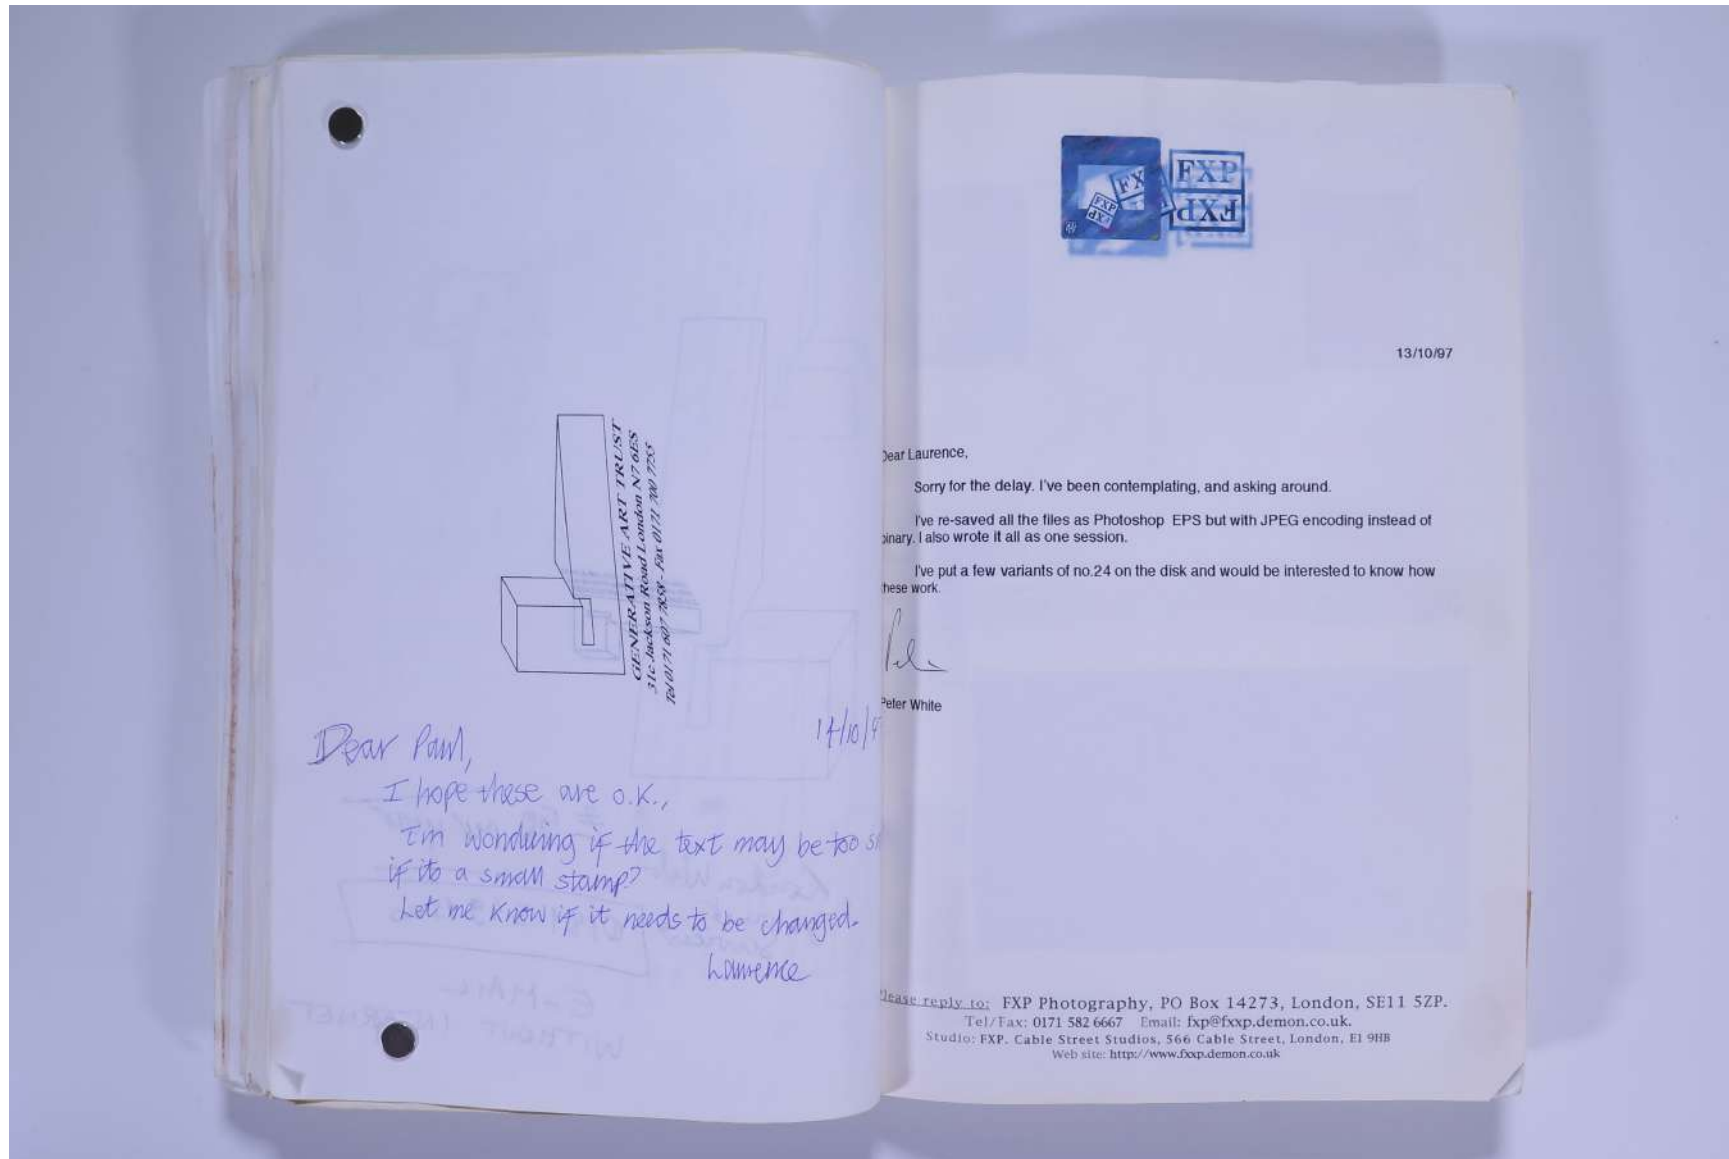 GENERATIVE ART TRUST
31c Jackson Road London N7 6ES
Tel 0171 607 7858 - Fax 0171 700 7755
14/10/9
Dear Paul,
I hope these are o.k.,
I'm wondering if the text may be too s
if its a small stamp?
Let me know if it needs to be changed.
Laurence
E-MAIL
WITHOUT INTERNET
FX
FXP
FXP
FXP
FXP
13/10/97
Dear Laurence,
Sorry for the delay. I've been contemplating, and asking around.
I've re-saved all the files as Photoshop EPS but with JPEG encoding instead of
binary. I also wrote it all as one session.
I've put a few variants of no.24 on the disk and would be interested to know how
these work.
Peter White
Please reply to: FXP Photography, PO Box 14273, London, SE11 5ZP.
Tel/Fax: 0171 582 6667 Email: fxp@fxxp.demon.co.uk.
Studio: FXP. Cable Street Studios, 566 Cable Street, London, E1 9HB
Web site: http://www.fxxp.demon.co.uk